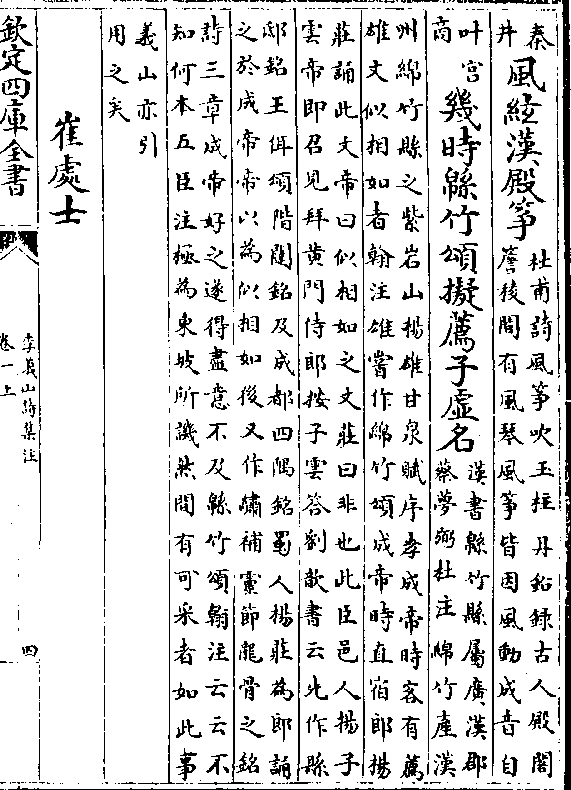 秦
井
風絃漢殿箏
杜甫詩風箏吹玉柱丹鉛録古人殿閣
簷稜間有風琴風箏皆因風動成音自
叶宮
商
幾時緜竹頌擬薦子虛名
漢書緜竹縣屬廣漢郡
蔡夢弼杜注綿竹産漢
州綿竹縣之紫岩山揚雄甘泉賦序孝成帝時客有薦
雄文似相如者翰注雄嘗作綿竹頌成帝時直宿郎楊
莊誦此文帝曰似相如之文莊曰非也此臣邑人揚子
雲帝即召見拜黄門侍郎按子雲答劉歆書云先作縣
邸銘王佴頌階闥銘及成都四隅銘蜀人楊莊為郎誦
之於成帝帝以為似相如後又作繡補靈節龍骨之銘
詩三章成帝好之遂得盡意不及緜竹頌翰注云云不
知何本五臣注極為東坡所譏然間有可采者如此事
義山亦引
用之矣
崔處士
欽定四庫全書
李義山詩集注
卷一上
四